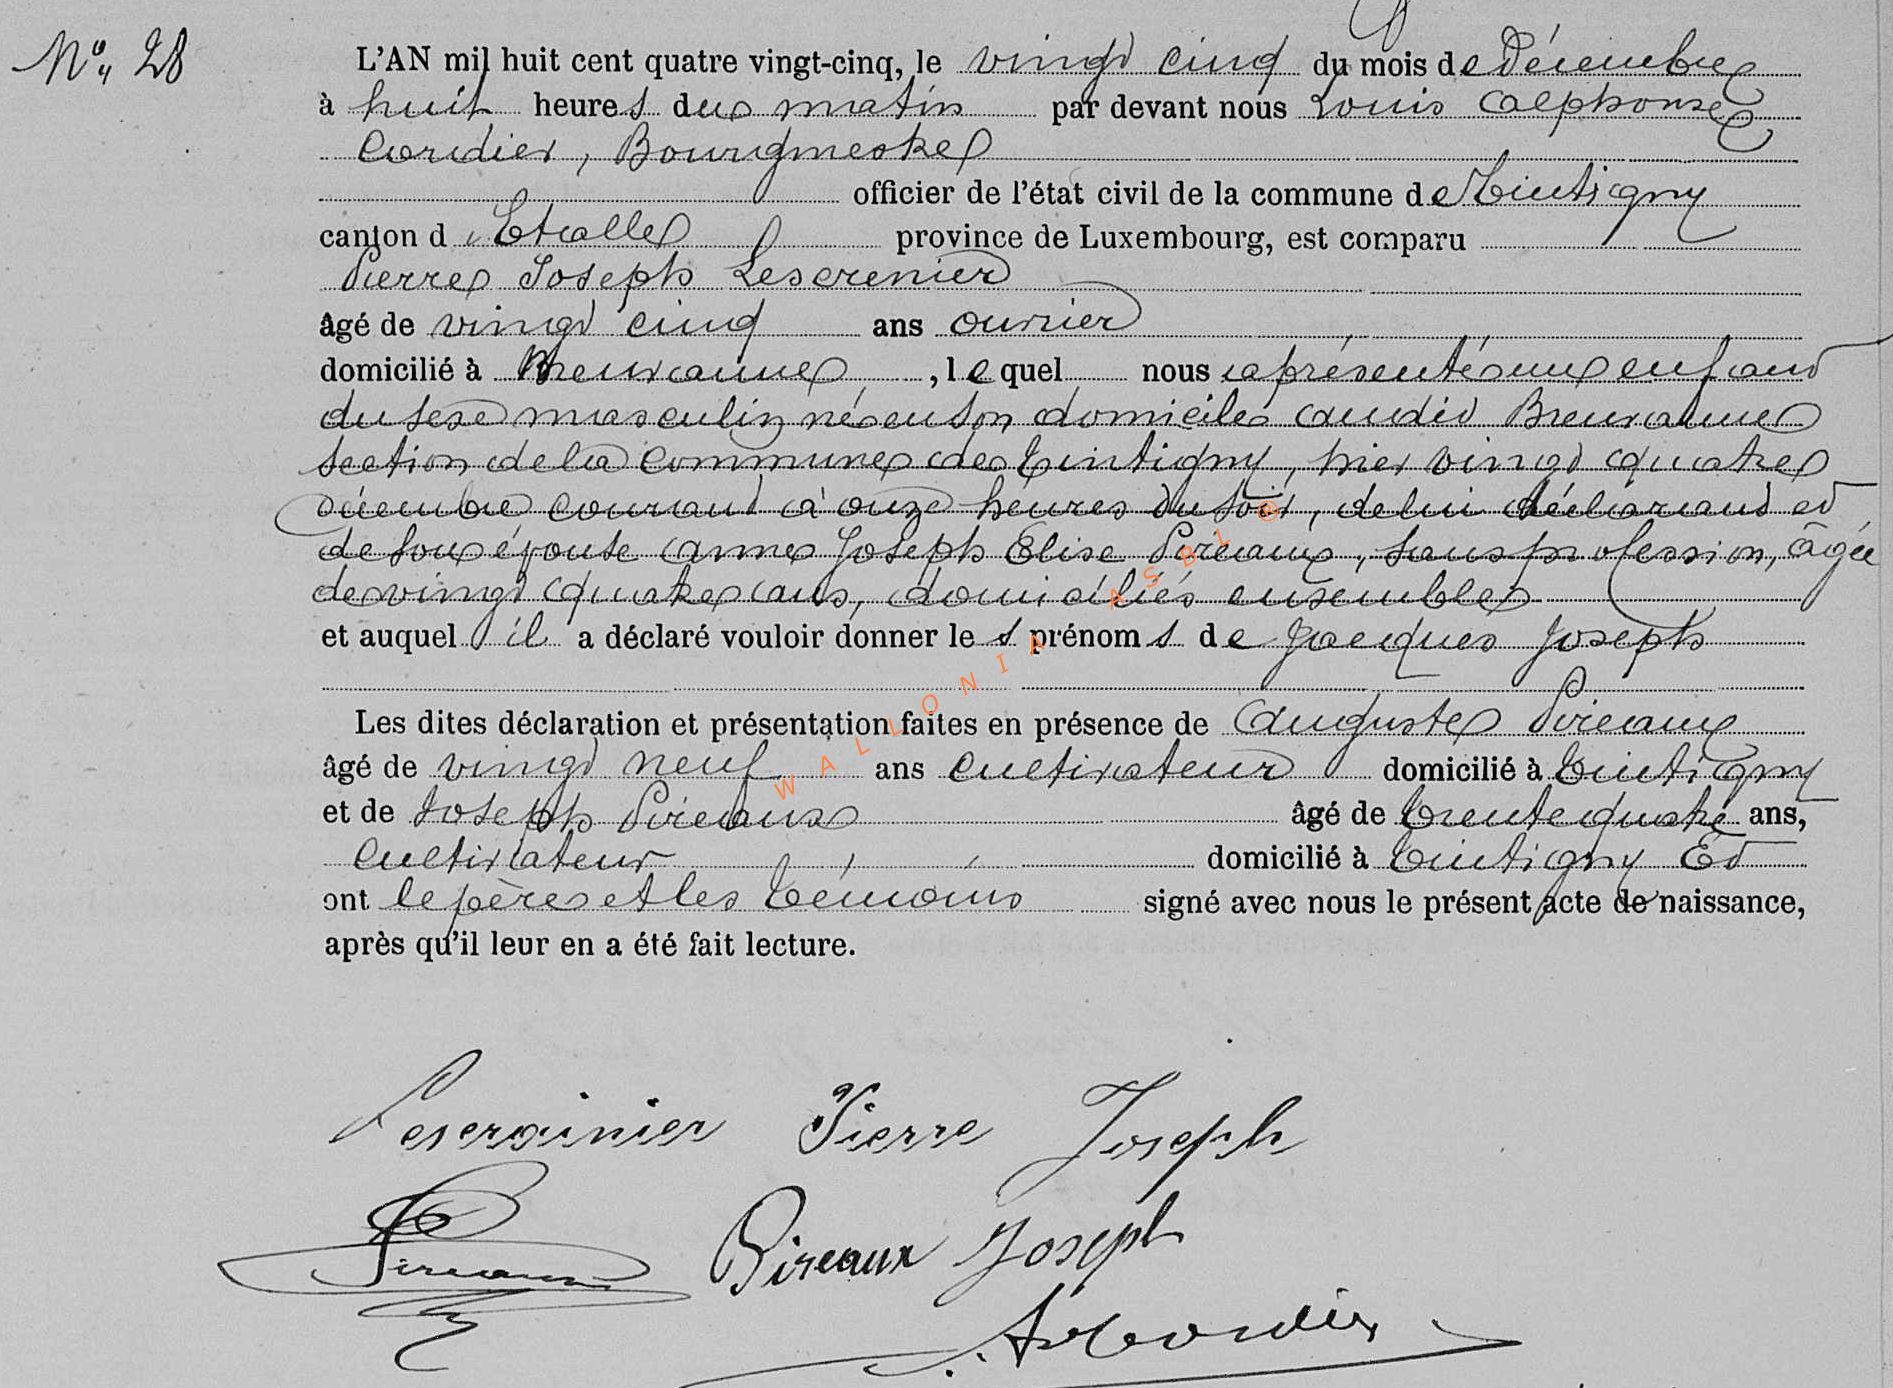 N° 28
L'AN mil huit cent quatre vingt-cinq, le vingt cinq du mois de Décembre
à huit heures du matin par devant nous Louis Alphonse
Cordier, Bourgmestre
officier de l'état civil de la commune de Tintigny
canton d'Etalle province de Luxembourg, est comparu
Pierre Joseph Lescrenier
âgé de vingt cinq ans ouvrier
domicilié à Breuvanne, lequel nous a présenté un enfant
du sexe masculin né en son domicile audit Breuvanne
section de la commune de Tintigny, hier vingt quatre
décembre courant à onze heures du soir, de lui déclarant et
de son épouse Anne Joseph Elise Pireaux, sans profession, âgée
de vingt quatre ans, domiciliés ensemble
et auquel il a déclaré vouloir donner les prénoms de Jacques Joseph
Les dites déclaration et présentation faites en présence de Auguste Pireaux
âgé de vingt neuf ans cultivateur domicilié à Tintigny
et de Joseph Pireaux âgé de trente quatre ans,
cultivateur domicilié à Tintigny Et
ont le père et les témoins signé avec nous le présent acte de naissance,
après qu'il leur en a été fait lecture.
WALLONIA ASBL ®
Lescrainier Pierre Joseph
Pireaux Pireaux Joseph
Cordier